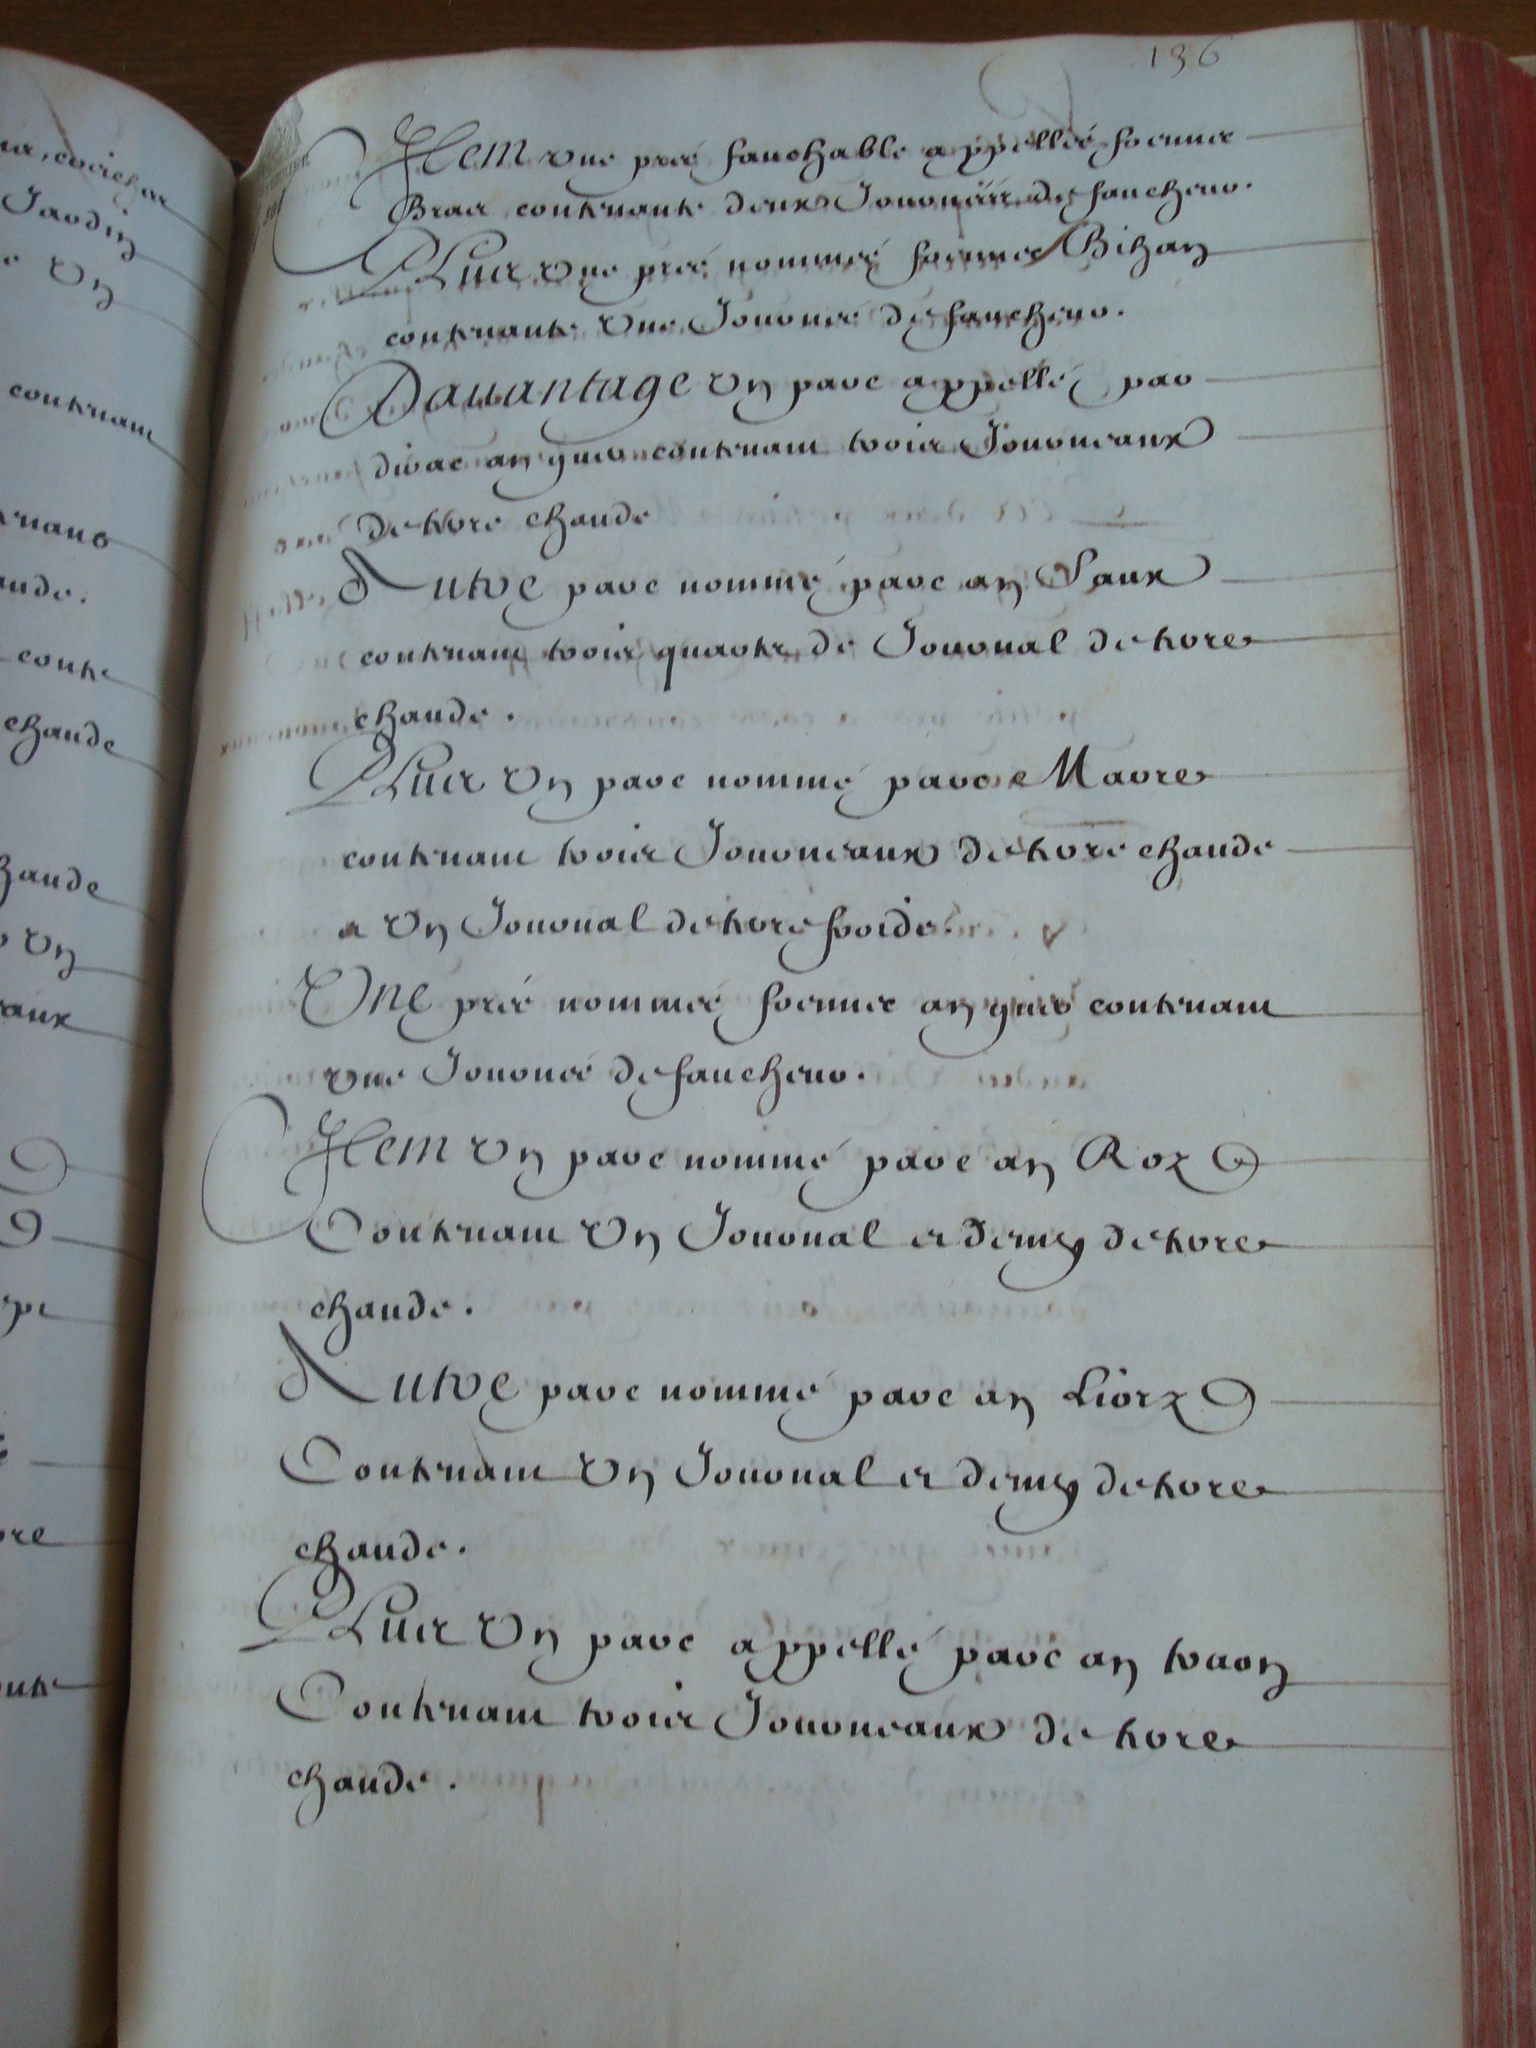 136
Item une préé fauchable appelléé foennec
Bras contenante deux Journées de faucheur.
Plus une préé nomméé foennec Bihan
contenante une Journeé de faucheur.
Dauantage un parc appellé par
divac an guer contenant trois Journeaux
de terre chaude
Autre parc nommé parc an Saux
contenant trois quartz de Journal de terre
chaude.
Plus un parc nommé parc Maure
contenant trois Journeaux de terre chaude
a un Journal de terre froide.
Une préé nomméé foennec an guer contenant
une Journeé de faucheur.
Item un parc nommé parc an Roz
Contenant un Journal et demy de terre
chaude.
Autre parc nommé parc an Liorz
Contenant un Journal et demy de terre
chaude.
Plus un parc appellé parc an traon
Contenant trois Journeaux de terre
chaude.
Jardin
un
contenant
chaude
chaude
un